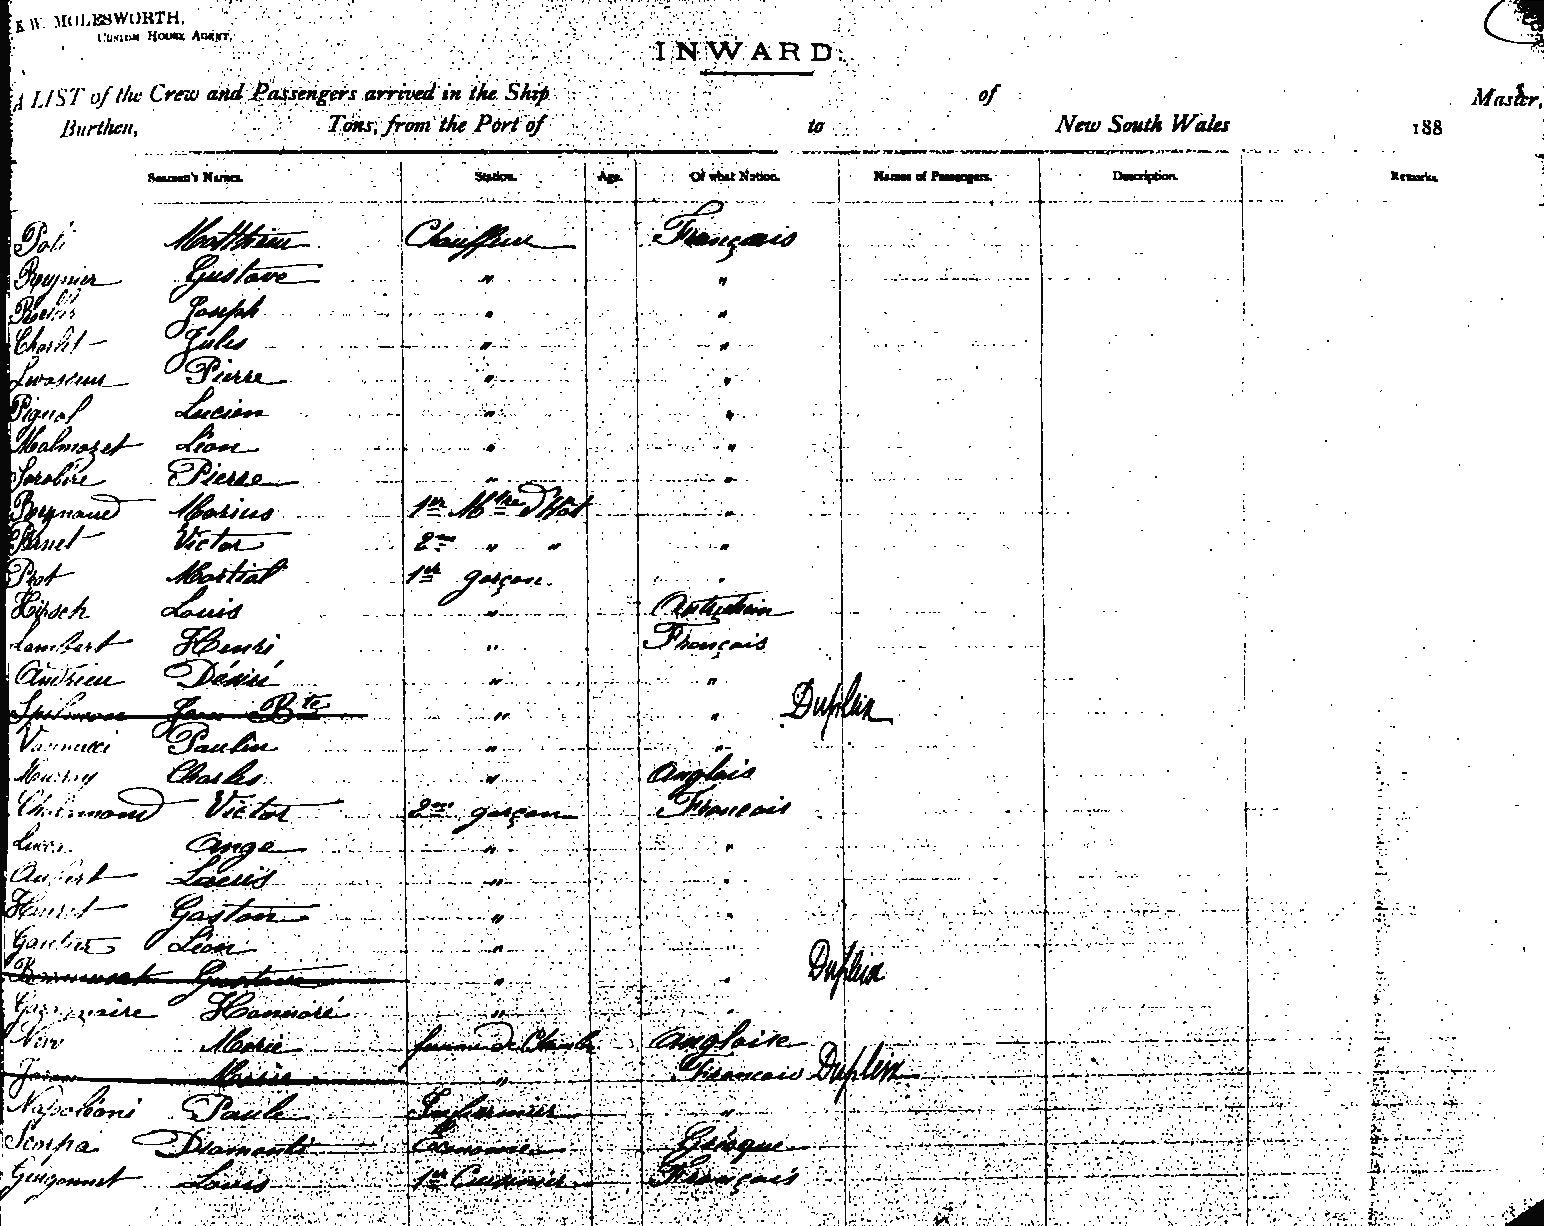 W. MOLESWORTH,
CUSTOM HOUSE AGENT.
INWARD.
A LIST of the Crew and Passengers arrived in the Ship of Master,
Burthen, Tons, from the Port of to New South Wales 188
Seamen's Names. Station. Age. Of what Nation. Names of Passengers. Description. Remarks.
Poli Matthieu Chauffeur Français
Reynier Gustave " "
Joseph " "
Charlet Jules " "
Levasseur Pierre " "
Pignol Lucien " "
Malmazet Léon " "
Pierre " "
Reynaud Marius 1er Mtre d'Hôt "
Brnet Victor 2me " " "
Prot Martial 1er garçon "
Hirsch Louis " Autrichien
Lambert Henri " Français
Andrieu Désiré " "
Jean Bte " " Dupleix
Vannucci Paulin " "
Charles " Anglais
Victor 2me garçon Français
Ange " "
Aubert Louis " "
Gaston " "
Gautier Léon " "
Gustave " " Dupleix
Honnoré " "
Marie femme de Chambre Anglaise
Marie " Français Dupleix
Napoléoni Paul Infirmier "
Scorpa Diamanti Grecque
Gengonnet Louis 1er Cuisinier Français